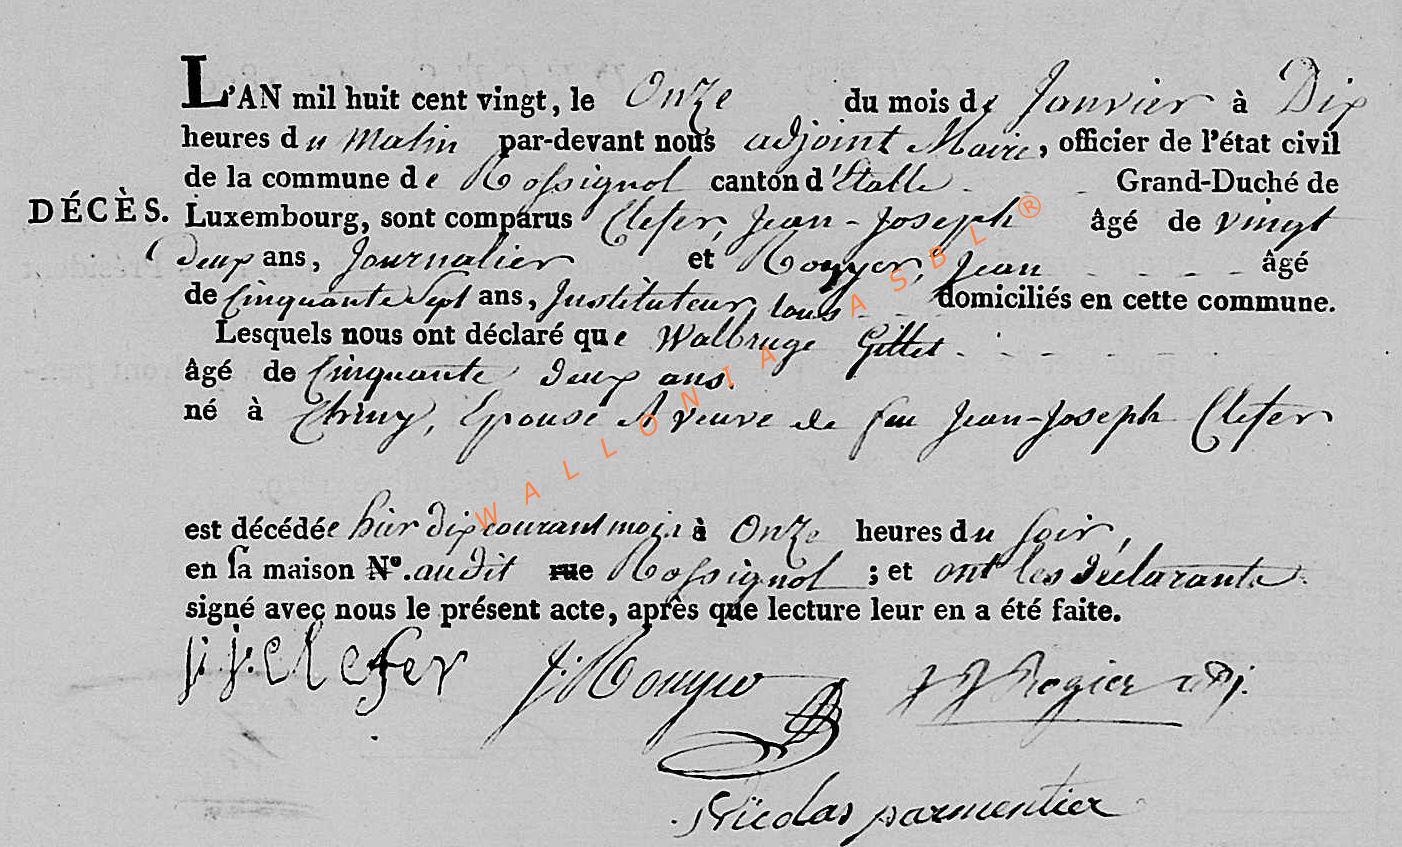 L'AN mil huit cent vingt, le Onze du mois de Janvier à Dix
heures du Matin par-devant nous adjoint Maire, officier de l'état civil
de la commune de Rossignol canton d'Etalle Grand-Duché de
DÉCÈS. Luxembourg, sont comparus Clefer, Jean-Joseph âgé de vingt
deux ans, Journalier et Rouyer, Jean âgé
de Cinquante Sept ans, Instituteur, tous domiciliés en cette commune.
Lesquels nous ont déclaré que Walbruge Gillet
âgé de Cinquante deux ans.
né à Chiny, Epouse et veuve de feu Jean-Joseph Clefer
est décédée hier dix courant mois à Onze heures du soir,
en sa maison N°. audit rue Rossignol ; et ont les déclarants
signé avec nous le présent acte, après que lecture leur en a été faite.
j. j. clefer J. Rouyer J J Rogier adj.
Nicolas parmentier
WALLONIA ASBL®